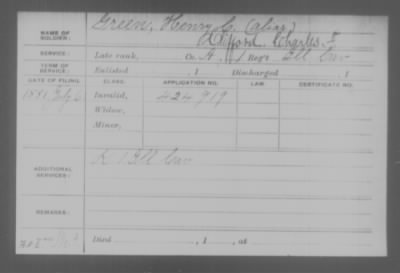 NAME OF SOLDIER: Green, Henry C. (alias)
Clifford, Charles F
SERVICE: Late rank, Co. A, 1 Reg't Ill Cav
TERM OF SERVICE: Enlisted , 1 Discharged , 1
DATE OF FILING. CLASS. APPLICATION NO. LAW. CERTIFICATE NO.
1881 July 6 Invalid, 424 919
Widow,
Minor,
ADDITIONAL SERVICES: K 1 Ill Cav
REMARKS:
Died , 1 , at